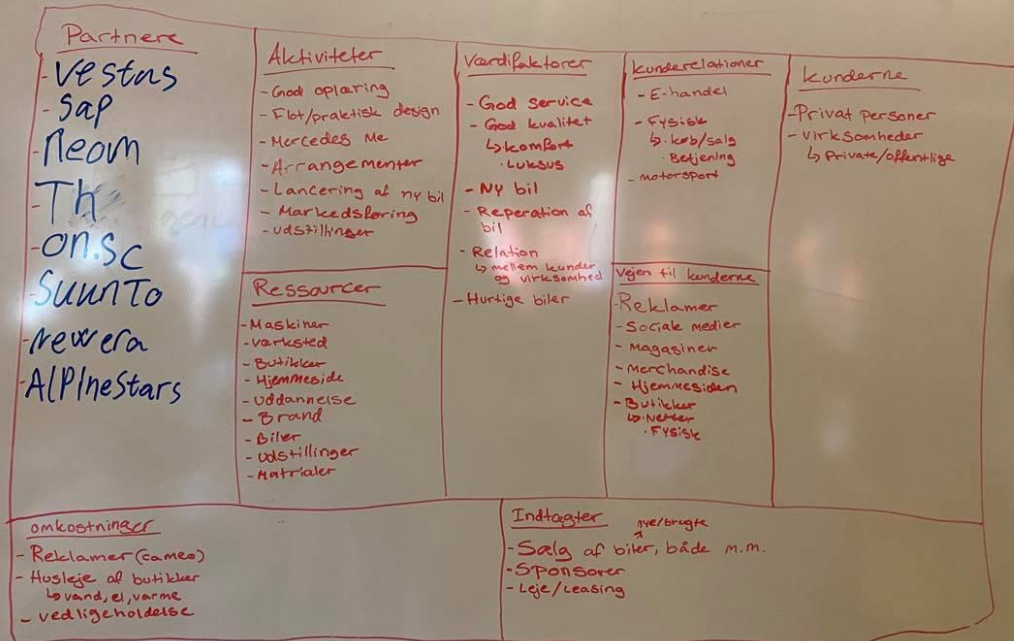 Partnere
- Vestas
- Sap
- Neom
- Th
- on.sc
- Suunto
- New era
- AlPInestars
Aktiviteter
- God oplæring
- Flot/praktisk design
- Mercedes Me
- Arrangementer
- Lancering af ny bil
- Markedsføring
- Udstillinger
Ressourcer
- Maskiner
- Værksted
- Butikker
- Hjemmeside
- Uddannelse
- Brand
- Biler
- Udstillinger
- Matrialer
Værdifaktorer
- God service
- God kvalitet
↳ komfort
· Luksus
- Ny bil
- Reperation af
bil
- Relation
↳ mellem kunder
og virksomhed
- Hurtige biler
Kunderelationer
- E-handel
- Fysisk
↳ køb/salg
· Betjening
- motorsport
Vejen til kunderne
- Reklamer
- Sociale medier
- Magasiner
- Merchandise
- Hjemmesiden
- Butikker
↳ Netter
· Fysisk
Kunderne
- Privat personer
- virksomheder
↳ Private/offentlige
omkostninger
- Reklamer (cameo)
- Husleje af butikker
↳ vand, el, varme
- vedligeholdelse
Indtægter
nye/brugte
- Salg af biler, både m.m.
- Sponsorer
- Leje/Leasing